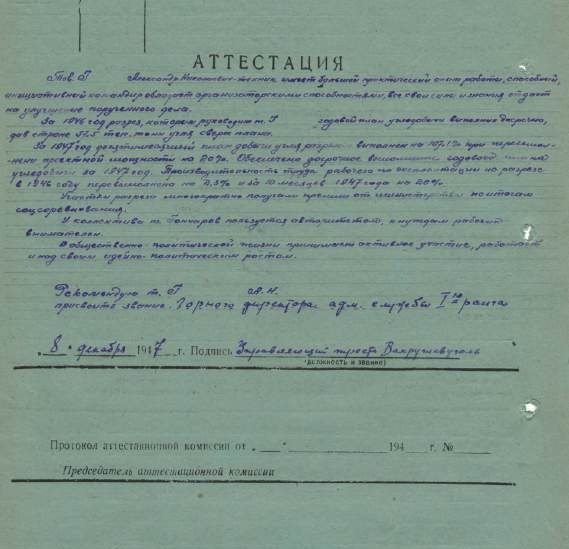 АТТЕСТАЦИЯ
Тов. Г Александр Николаевич - техник имеет большой практический опыт работы, способный,
инициативный командир обладает организаторскими способностями, все свои силы и знания отдает
на улучшение порученного дела.
За 1946 год разрез, которым руководит т. Г годовой план угледобычи выполнил досрочно,
дав стране 51,5 тыс. тонн угля сверх плана.
За 1947 год десятимесячный план добычи угля разрез выполнил на 107,1% при перевыполнении
проектной мощности на 20%. Обеспечено досрочное выполнение годового плана
угледобычи за 1947 год. Производительность труда рабочего по эксплоатации по разрезу
в 1946 году перевыполнена на 2,3% и за 10 месяцев 1947 года на 20%.
Участки разреза многократно получали премии от министерства по итогам
соцсоревнования.
У коллектива т. Гончаров пользуется авторитетом, к нуждам рабочих
внимателен.
В общественно-политической жизни принимает активное участие, работает
и над своим идейно-политическим ростом.
Рекомендую т. Г А.Н.
присвоить звание: Горного директора адм. службы I го ранга
„8“ декабря 1947 г. Подпись Управляющий треста Вахрушевуголь
(должность и звание)
Протокол аттестационной комиссии от „ “ 194 г. №
Председатель аттестационной комиссии